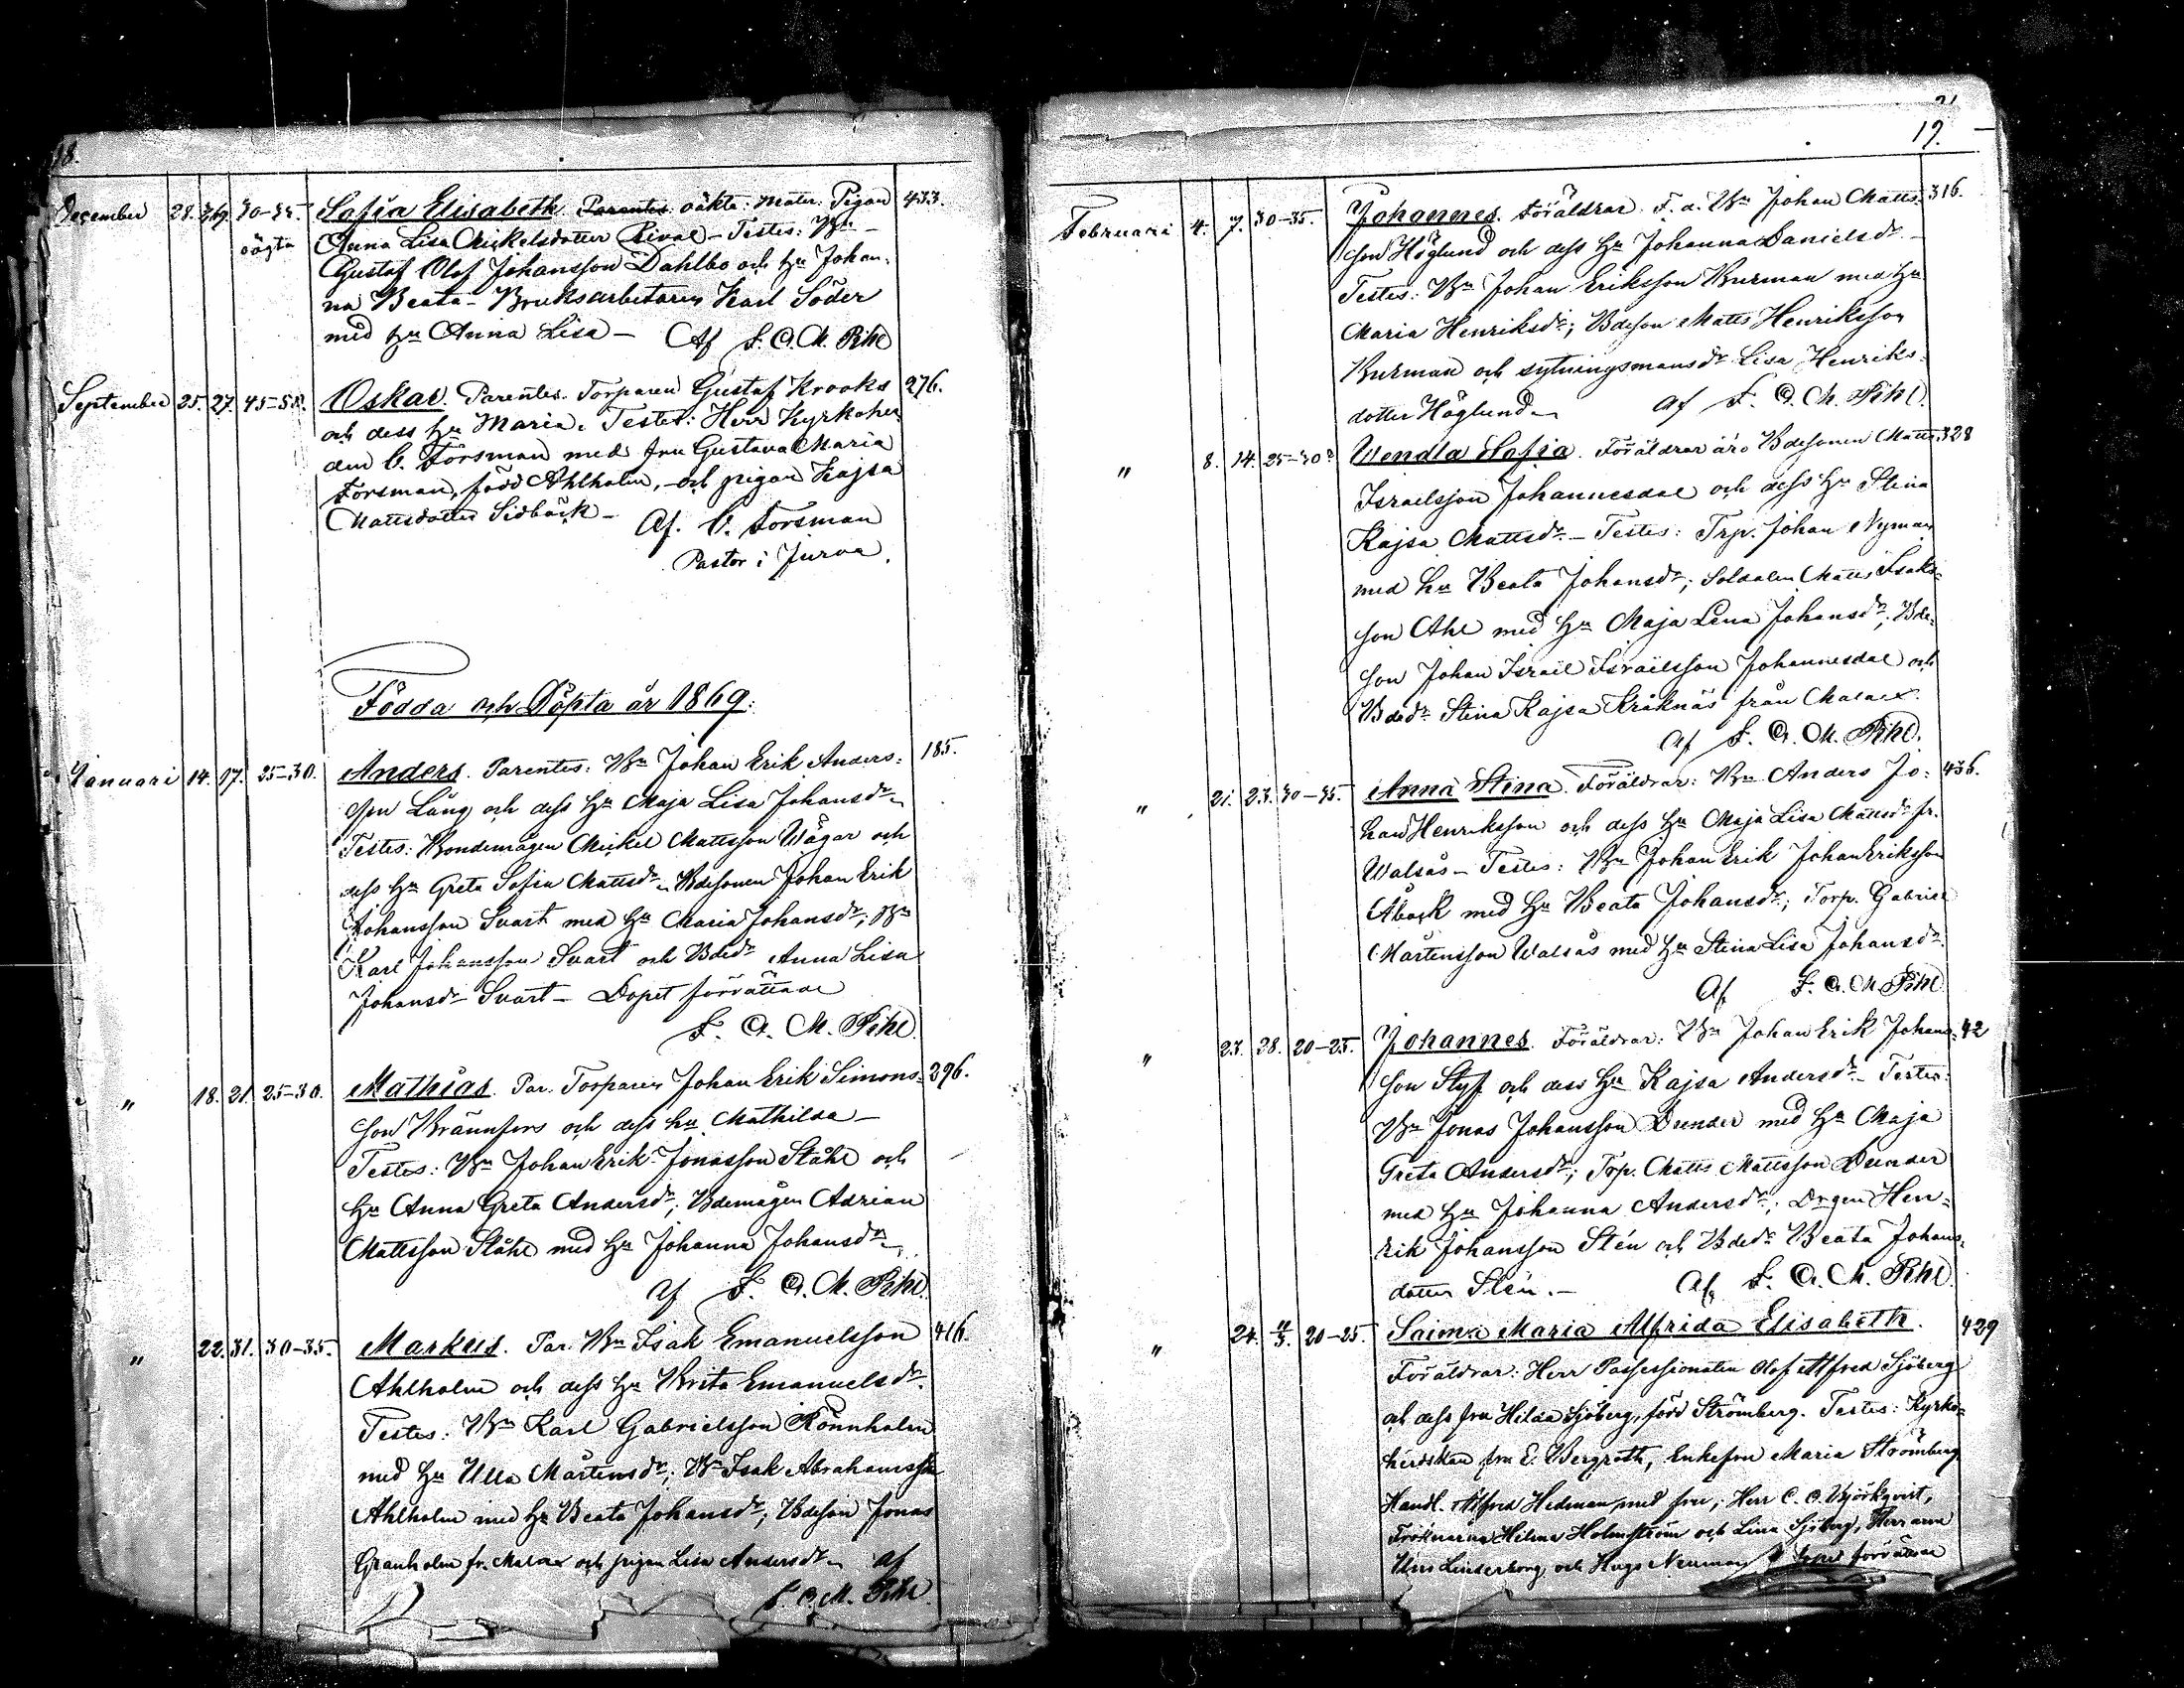 18.
December 28. 3/69. 30-35. Sofia Elisabeth. Parentes. oäkta: Mater: Pigan 433.
oägta Anna Lisa Mickelsdotter Rival - Testes: Bn
Gustaf Olof Johansson Dahlbo och hu Johan-
na Beata - Bruksarbetaren Karl Söder
med hu Anna Lisa - Af F. O. M. Pihl
September 25. 27. 45-50. Oskar. Parentes. Torparen Gustaf Krooks 276.
och dess hu Maria. Testes: Herr Kyrkoher
den C. Forsman med fru Gustava Maria
Forsman, född Ahlholm, och pigan Kajsa
Mattsdotter Sidbäck - Af. C. Forsman
Pastor i Jurva.
Födda och Döpta år 1869.
Januari 14. 17. 25-30. Anders. Parentes: Bn Johan Erik Anders- 185.
son Lång och dess hu Maja Lisa Johansdr
Testes: Bondemågen Mickel Mattsson Wågar och
dess hu Greta Sofia Mattsdr Bdesonen Johan Erik
Johansson Svart med hu Maria Johansdr; Bn
Karl Johansson Svart och Bdedr Anna Lisa
Johansdr Svart - Dopet förrättade
F. O. M. Pihl.
" 18. 21. 25-30. Mathias. Par. Torparen Johan Erik Simons- 396.
son Brännfors och dess hu Mathilda -
Testes: Bn Johan Erik Jonasson Ståhl och
hu Anna Greta Andersdr; Bdemågen Adrian
Mattsson Ståhl med hu Johanna Johansdr
af F. O. M. Pihl.
" 22. 31. 30-35. Markus. Par. Bn Isak Emanuelsson 416.
Ahlholm och dess hu Brita Emanuelsdr.
Testes: Bn Karl Gabrielsson Rönnholm
med hu Ulla Mårtensdr; Bn Isak Abrahamsson
Ahlholm med hu Beata Johansdr; Bdeson Jonas
Granholm fr. Malax och pigan Lisa Andersdr af
F. O. M. Pihl.
19.
Februari 4. 7. 30-35. Johannes. Föräldrar. F. d. Bn Johan Matts- 316.
son Höglund och dess hu Johanna Danielsdr -
Testes: Bn Johan Eriksson Burman med hu
Maria Henriksdr; Bdeson Matts Henriksson
Burman och sytningsmansdr Lisa Henriks-
dotter Höglund. af F. O. M. Pihl.
" 8. 14. 25-30. Wendla Sofia. Föräldrar äro Bdesonen Matts 328
Israelsson Johannesdal och dess hu Stina
Kajsa Mattsdr. - Testes: Trp. Johan Nyman
med hu Beata Johansdr; Soldaten Matts Isaks-
son Ahl med hu Maja Lena Johansdr; Bde-
son Johan Israel Israelsson Johannesdal och
Bdedr Stina Kajsa Kråknäs från Malax.
af F. O. M. Pihl.
" 21. 23. 30-35. Anna Stina. Föräldrar: Bn Anders Jo- 436.
han Henriksson och dess hu Maja Lisa Mattsdr fr.
Walsås - Testes: Bn Johan Erik Johan Eriksson
Åback med hu Beata Johansdr; Torp. Gabriel
Mårtensson Walsås med hu Stina Lisa Johansdr.
Af F. O. M. Pihl
" 23. 28. 20-25. Johannes. Föräldrar: Bn Johan Erik Johans- 42
son Styf och dess hu Kajsa Andersdr - Testes:
Bn Jonas Johansson Dunder med hu Maja
Greta Andersdr; Trp. Matts Mattsson Dunder
med hu Johanna Andersdr; Drgen Hen-
rik Johansson Stén och Bdedr Beata Johans-
dotter Stén. - Af F. O. M. Pihl.
" 24. 20-25. Saima Maria Alfrida Elisabeth. 429
Föräldrar: Herr Possessionaten Olof Alfred Sjöberg
och dess fru Hilda Sjöberg, född Strömberg. Testes: Kyrko-
herdskan fru E. Bergroth, Enkefru Maria Strömberg
Handl. Alfred Hedman med fru; Herr C. O. Björkqvist,
Fröknarna Hilma Holmström och Lina Sjöberg, Herrarne
Linderborg och Hugo Neuman, Dopet förrättade